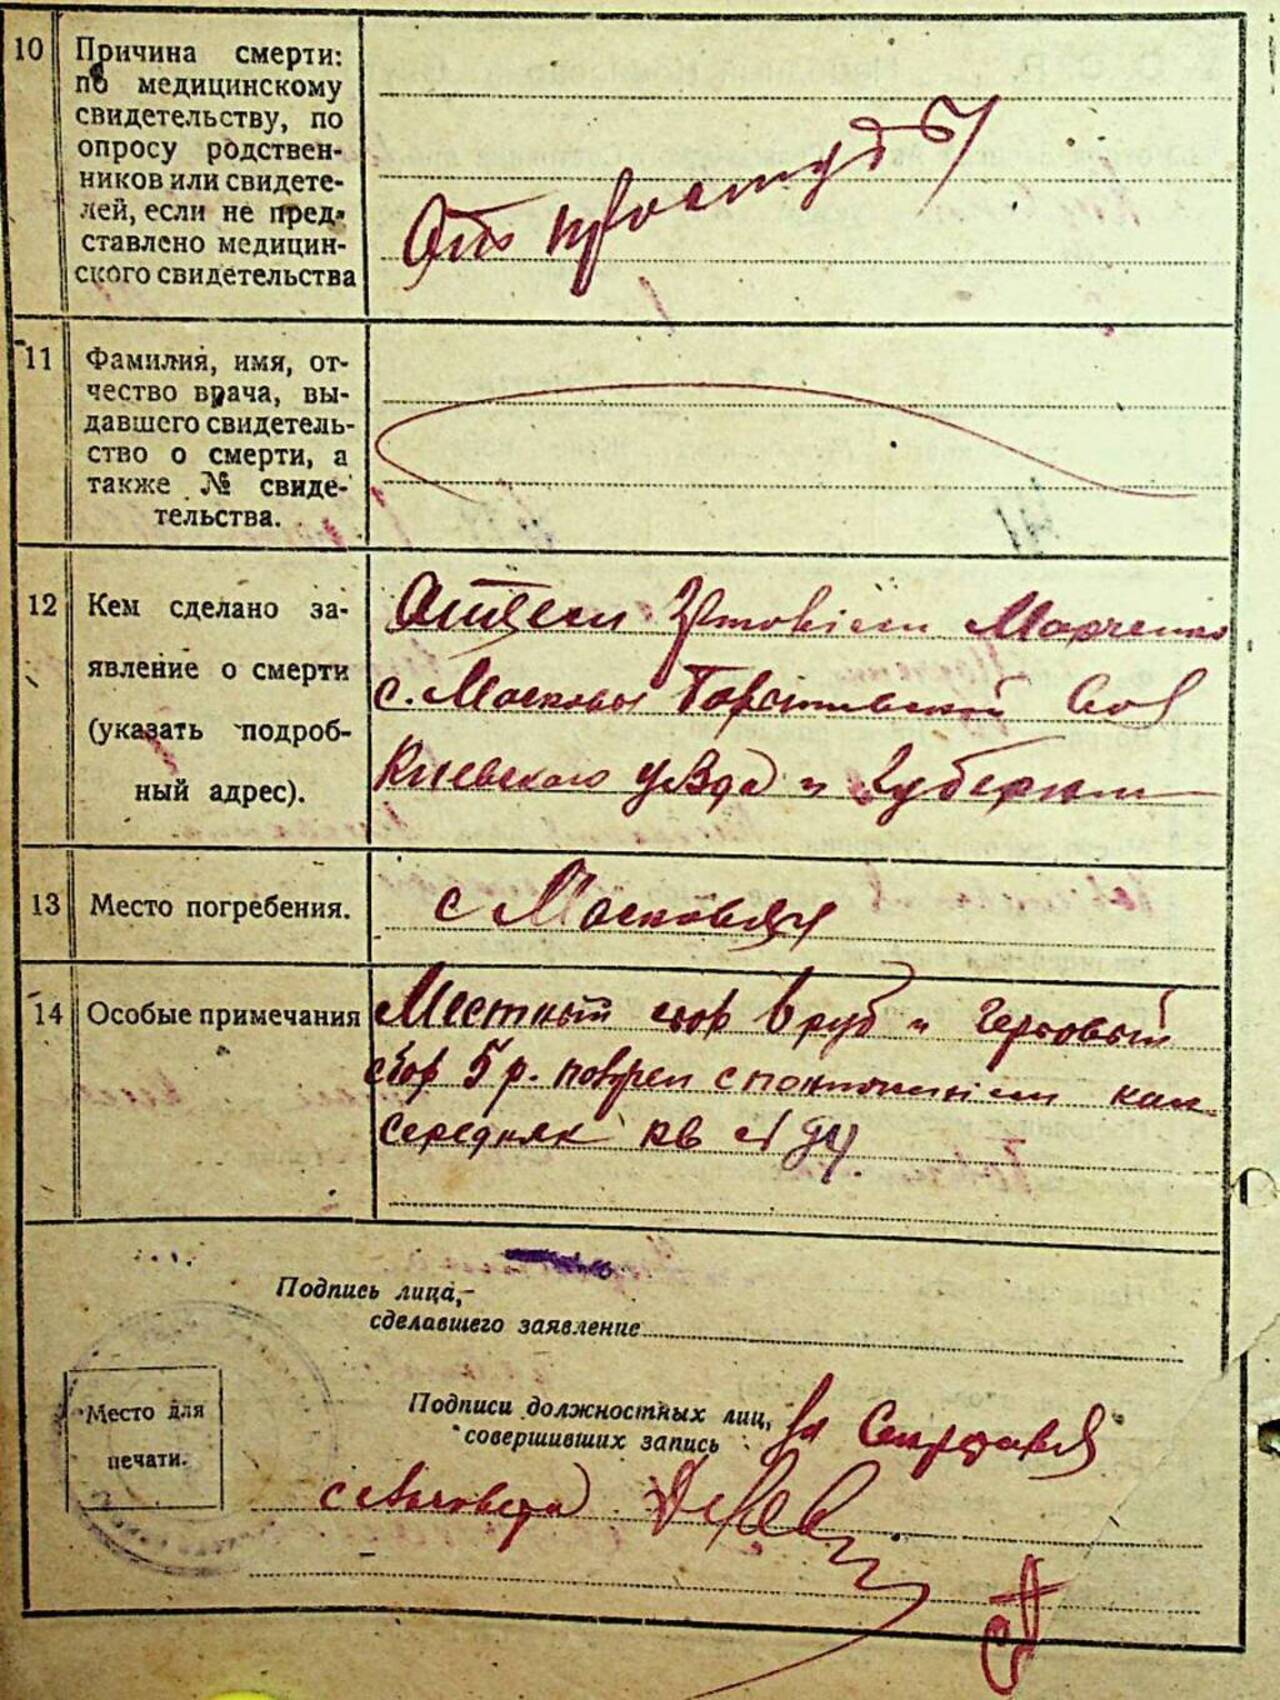 10 Причина смерти:
по медицинскому
свидетельству, по
опросу родствен-
ников или свидете-
лей, если не пред-
ставлено медицин-
ского свидетельства
От простуды
11 Фамилия, имя, от-
чество врача, вы-
давшего свидетель-
ство о смерти, а
также № свиде-
тельства.
12 Кем сделано за-
явление о смерти
(указать подроб-
ный адрес).
Отцем Марченко
с. Московки Вол
Киевского уезда и Губернии
13 Место погребения.
с Московка
14 Особые примечания
Местный сбор руб и Гербовый
сбор 5 р. как
Середняк кв № 94.
Подпись лица,
сделавшего заявление
Место для
печати.
Подписи должностных лиц,
совершивших запись
за